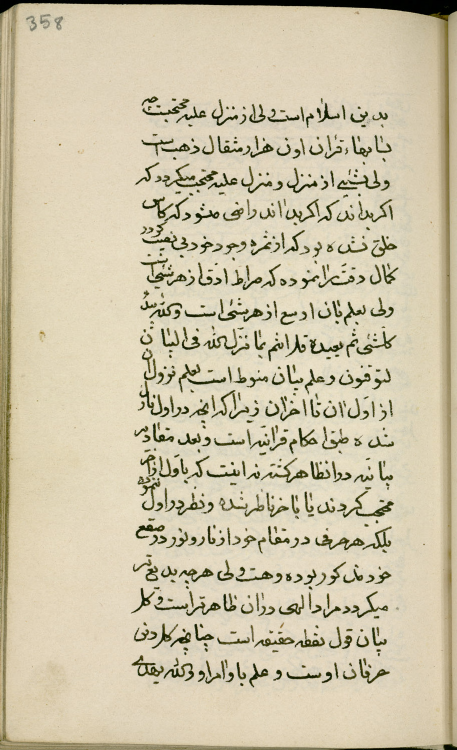 358
بدین اسلام است ولی از منزل علیه محتجبند چه
بسا بهاء قرآن اون هزار مثقال ذهب است
ولی بشیئی از منزل و منزل علیه محتجب میگردد که
اگر بداند که اگر بداند راضی میشود که کاش
خلق نشده بود که از ثمره وجود خود بی نصیب گردد
کمال دقت را نموده که صراط ادق از هر شیئی است
ولی بعلم بیان اوسع از هر شیئی است و الله یبدء
کلشیئی ثم یعیده قل انتم بما نزل الله فی البیان
لتوقنون و علم بیان منوط است بعلم نزول
از اول آن تا آخر آن زیرا که آنچه در اول نازل
شده طبق احکام قرآنیه است و بعد مقادیر
بیانیه در آن ظاهر گشته نه اینست که باول از آخر
محتجب گردند یا بآخر ناظر شده و نظر در اول ننموده
بلکه هر حرفی در مقام خود از نار و نور در صقع
خود مذکور بوده و هست ولی هر چه بدیع تر
میگردد مراد الهی در آن ظاهر تر است و کل
بیان قول نقطه حقیقت است چنانچه کل دین
عرفان اوست و علم باوامر او والله یهدی